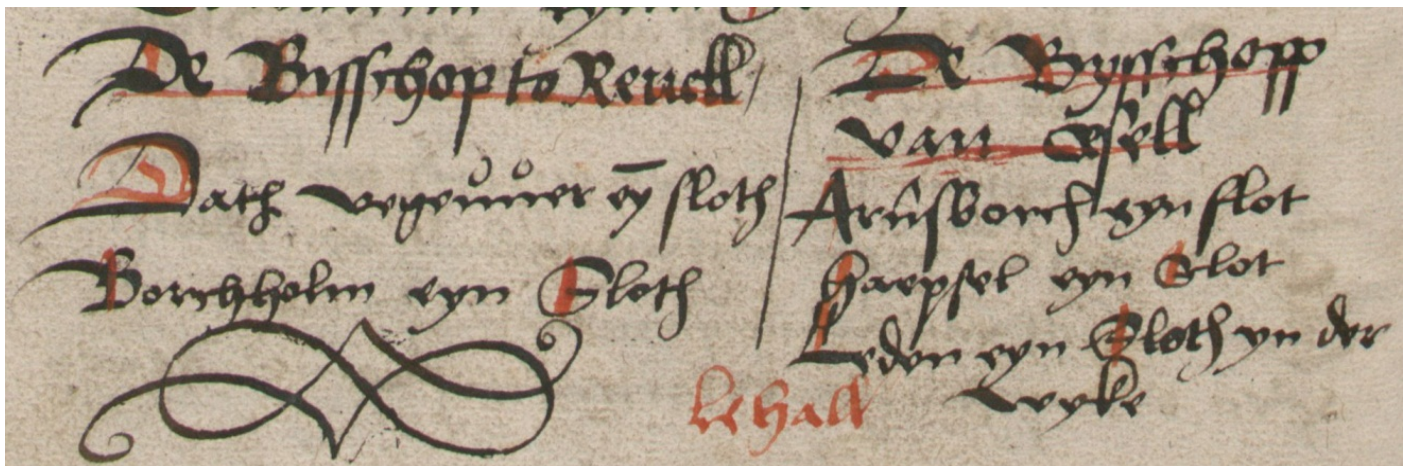 De Bisschop to Reuell
Dath vegeuuer eȳ sloth
Borchholm eyn Sloth
De Bysschopp
van Oesell
Arnsborch eyn slot
Haepsel eyn Slot
Leden eyn Sloth yn der
wyke
lehall